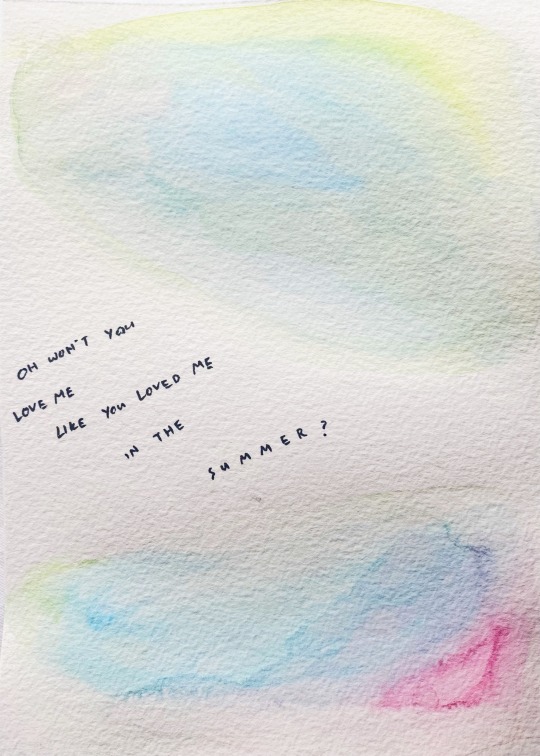 OH WON'T YOU
LOVE ME
LIKE YOU LOVED ME
IN THE
SUMMER?